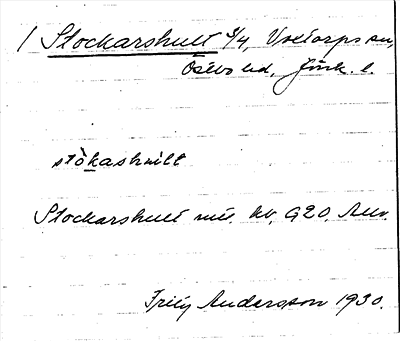 / Stockarshult 3/4, Voxtorps sn,
Östbo hd, Jönk. l.
stòkashult
Stockarshult mt. kv. G20. Allv.
Andersson 1930.